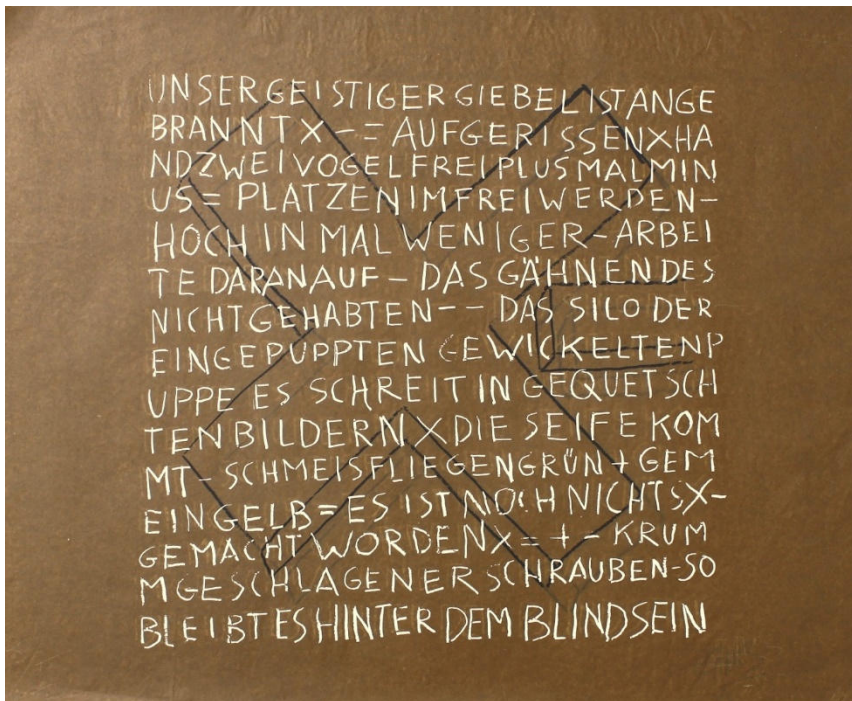 UNSERGEISTIGER GIEBEL IST ANGE
BRANNTX-=AUFGERISSENXHA
NDZWEIVOGELFREIPLUSMALMIN
US=PLATZENIMFREIWERDEN-
HOCH IN MAL WENIGER-ARBEI
TE DARANAUF-DAS GÄHNENDES
NICHTGEHABTEN--DAS SILO DER
EINGEPUPPTEN GEWICKELTENP
UPPE ES SCHREIT IN GEQUETSCH
TENBILDERNXDIE SEIFE KOM
MT-SCHMEISFLIEGENGRÜN+GEM
EINGELB=ES IST NOCH NICHTSX-
GEMACHT WORDENX=+-KRUM
MGESCHLAGENERSCHRAUBEN-SO
BLEIBTESHINTER DEM BLINDSEIN